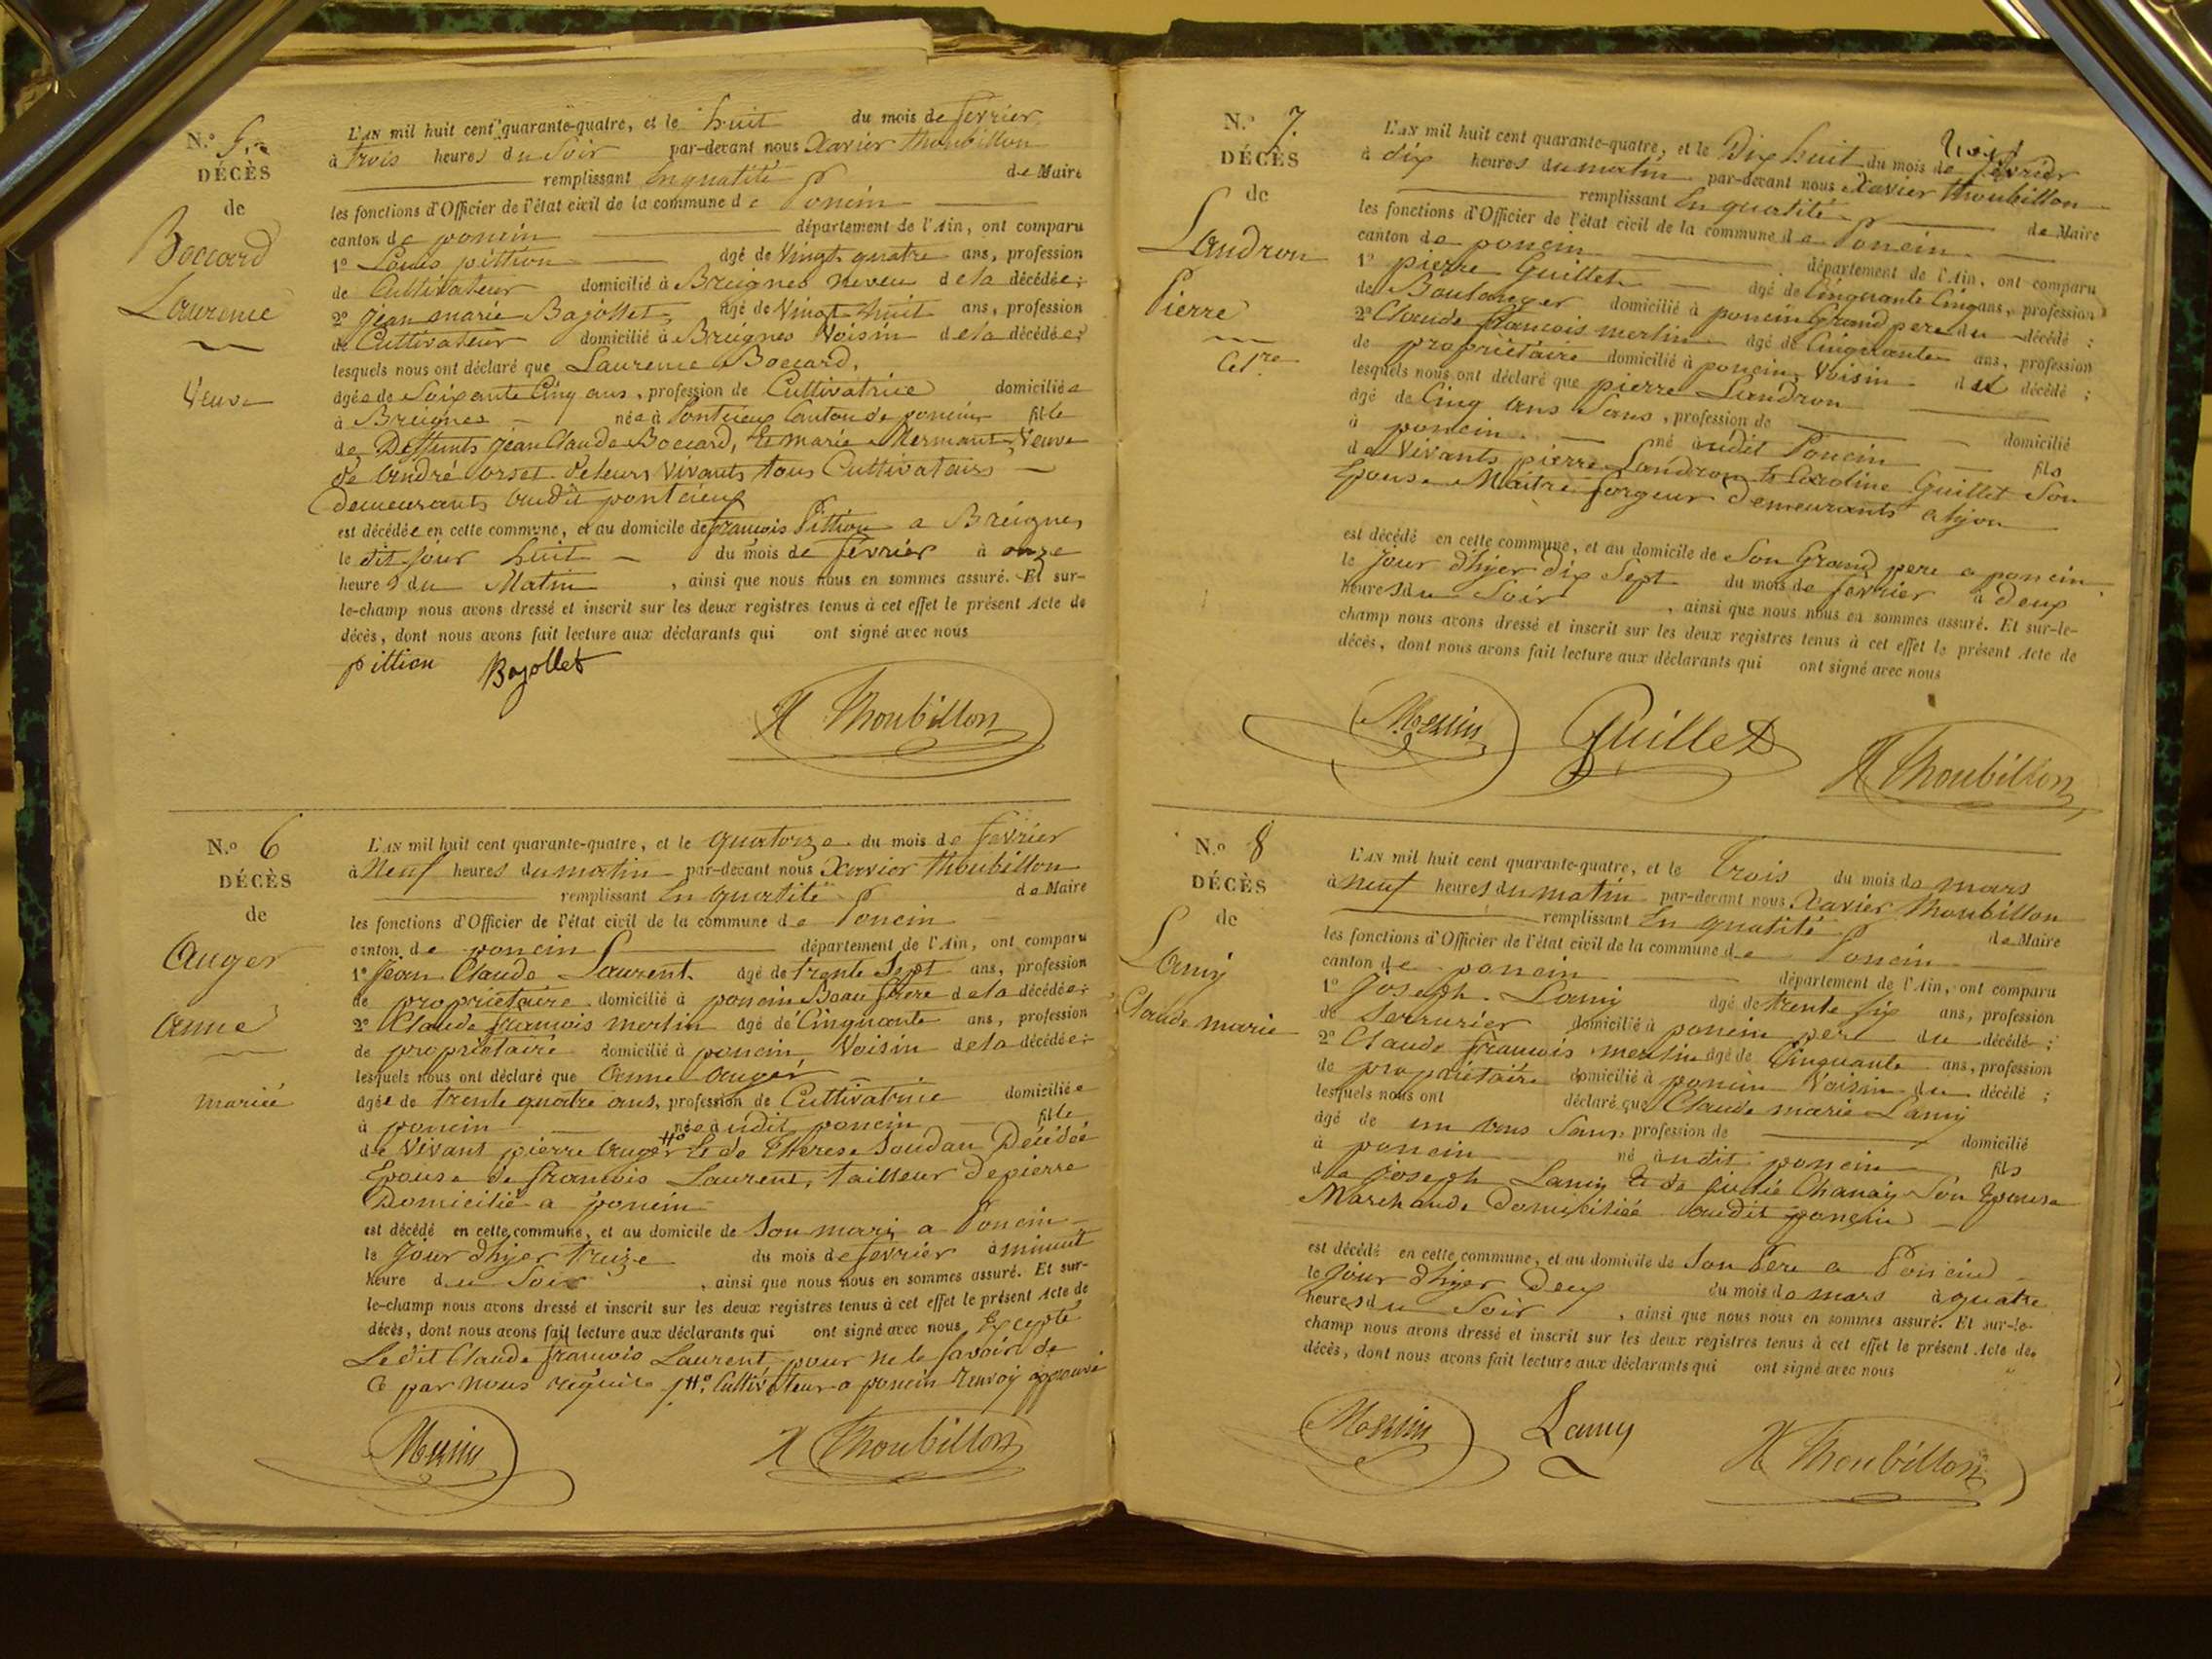 N.o 5
DÉCÈS
de
Boccard
Laurence
Veuve
L'AN mil huit cent quarante-quatre, et le huit du mois de fevrier
à trois heures du Soir par-devant nous Xavier Thoubillon
remplissant En qualité de Maire
les fonctions d'Officier de l'état civil de la commune de Poncin
canton de poncin département de l'Ain, ont comparu
1o Louis pittion âgé de Vingt quatre ans, profession
de Cultivateur domicilié à Breignes neveu de la décédée;
2o Jean marie Bajollet, âgé de Vingt huit ans, profession
de Cultivateur domicilié à Breignes Voisin de la décédée;
lesquels nous ont déclaré que Laurence Boccard,
âgée de Soixante Cinq ans, profession de Cultivatrice domiciliée
à Breignes née à Pontcieux Canton de poncin fille
de Deffunts Jean Claude Boccard, Et marie Mermant Veuve
de André orset de leurs Vivants tous Cultivateurs
Demeurants audit pontcieux
est décédée en cette commune, et au domicile de francois Pittion a Breignes
le dit jour huit du mois de février à onze
heures du Matin, ainsi que nous nous en sommes assuré. Et sur-
le-champ nous avons dressé et inscrit sur les deux registres tenus à cet effet le présent Acte de
décès, dont nous avons fait lecture aux déclarants qui ont signé avec nous
pittion Bajollet
X Thoubillon
N.o 6
DÉCÈS
de
Auger
Anne
mariée
L'AN mil huit cent quarante-quatre, et le quatorze du mois de fevrier
à Neuf heures du matin par-devant nous Xavier Thoubillon
remplissant En qualité de Maire
les fonctions d'Officier de l'état civil de la commune de Poncin
canton de poncin département de l'Ain, ont comparu
1o Jean Claude Laurent âgé de trente Sept ans, profession
de propriétaire domicilié à poncin Beau frere de la décédée;
2o Claude francois merlin âgé de Cinquante ans, profession
de propriétaire domicilié à poncin, Voisin de la décédée;
lesquels nous ont déclaré que Anne Auger
âgée de trente quatre ans, profession de Cultivatrice domiciliée
à poncin née audit poncin fille
de Vivant pierre Auger Et de Therese Soudan Décédée
Epouse de francois Laurent, tailleur de pierre
Domicilié a poncin
est décédé en cette commune, et au domicile de Son mari a Poncin
le Jour d'hyer treize du mois de fevrier à minuit
heure du Soir, ainsi que nous nous en sommes assuré. Et sur-
le-champ nous avons dressé et inscrit sur les deux registres tenus à cet effet le présent Acte de
décès, dont nous avons fait lecture aux déclarants qui ont signé avec nous, Excepté
Ledit Claude francois Laurent pour ne le savoir de
Ce par nous requis. Cultivateur a poncin renvoy approuvé
Merlin X Thoubillon
N.o 7
DÉCÈS
de
Landron
Pierre
Cel.re
L'AN mil huit cent quarante-quatre, et le Dix huit du mois de fevrier
à dix heures du matin par-devant nous Xavier Thoubillon
remplissant En qualité de Maire
les fonctions d'Officier de l'état civil de la commune de Poncin
canton de poncin département de l'Ain, ont comparu
1o pierre Guillet âgé de Cinquante Cinq ans, profession
de Boulanger domicilié à poncin Grand pere du décédé;
2o Claude francois merlin âgé de Cinquante ans, profession
de propriétaire domicilié à poncin, Voisin du décédé;
lesquels nous ont déclaré que pierre Landron
âgé de Cinq ans Sans, profession de domicilié
à poncin né audit Poncin fils
de Vivants pierre Landron Et Caroline Guillet Son
Epouse Maitre forgeur Demeurants
est décédé en cette commune, et au domicile de Son Grand pere a poncin
le Jour d'hyer dix Sept du mois de fevrier à deux
heures du Soir, ainsi que nous nous en sommes assuré. Et sur-le-
champ nous avons dressé et inscrit sur les deux registres tenus à cet effet le présent Acte de
décès, dont nous avons fait lecture aux déclarants qui ont signé avec nous
Merlin Guillet X Thoubillon
N.o 8
DÉCÈS
de
Lamy
Claude marie
L'AN mil huit cent quarante-quatre, et le Trois du mois de mars
à neuf heures du matin par-devant nous Xavier Thoubillon
remplissant En qualité de Maire
les fonctions d'Officier de l'état civil de la commune de Poncin
canton de poncin département de l'Ain, ont comparu
1o Joseph Lamy âgé de trente six ans, profession
de Serrurier domicilié à poncin pere du décédé;
2o Claude francois merlin âgé de Cinquante ans, profession
de propriétaire domicilié à poncin Voisin du décédé;
lesquels nous ont déclaré que Claude marie Lamy
âgé de un ans Sans, profession de domicilié
à poncin né audit poncin fils
de Joseph Lamy Et de Julie Chanay Son Epouse
Marchande Domiciliée audit poncin
est décédé en cette commune, et au domicile de Son Pere a Poncin
le Jour d'hyer Deux du mois de mars à quatre
heures du Soir, ainsi que nous nous en sommes assuré. Et sur-le-
champ nous avons dressé et inscrit sur les deux registres tenus à cet effet le présent Acte de
décès, dont nous avons fait lecture aux déclarants qui ont signé avec nous
Merlin Lamy X Thoubillon